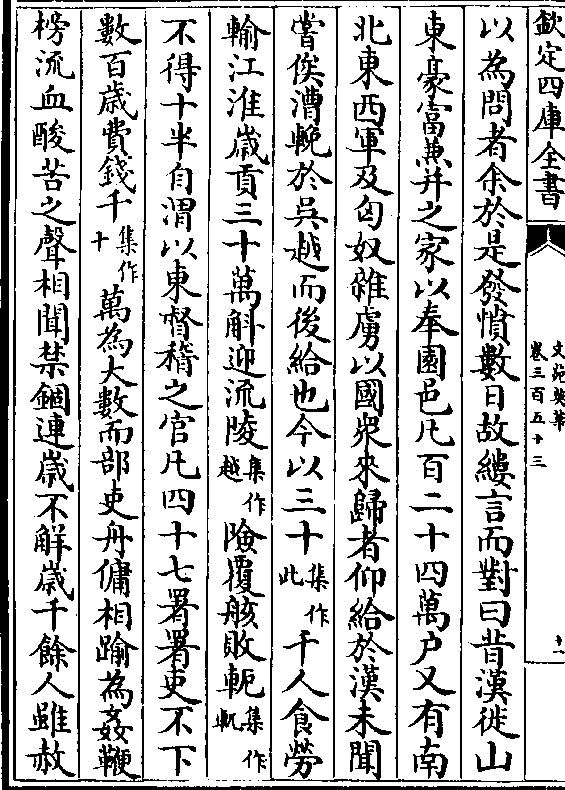 欽定四庫全書
文苑英華
卷三百五十三
十一
以為問者余於是發憤數日故縷言而對曰昔漢徙山
東豪富兼并之家以奉園邑凡百二十四萬户又有南
北東西軍及匈奴雜虜以國衆來歸者仰給於漢未聞
嘗俟漕輓於吳越而後給也今以三十集作此千人食勞
輸江淮歲貢三十萬斛迎流陵集作越險覆舷敗軛集作軏
不得十半自渭以東督稽之官凡四十七署署吏不下
數百歲費錢千集作十萬為大數而部吏舟傭相踰為姦鞭
榜流血酸苦之聲相聞禁錮連歲不解歲千餘人雖赦